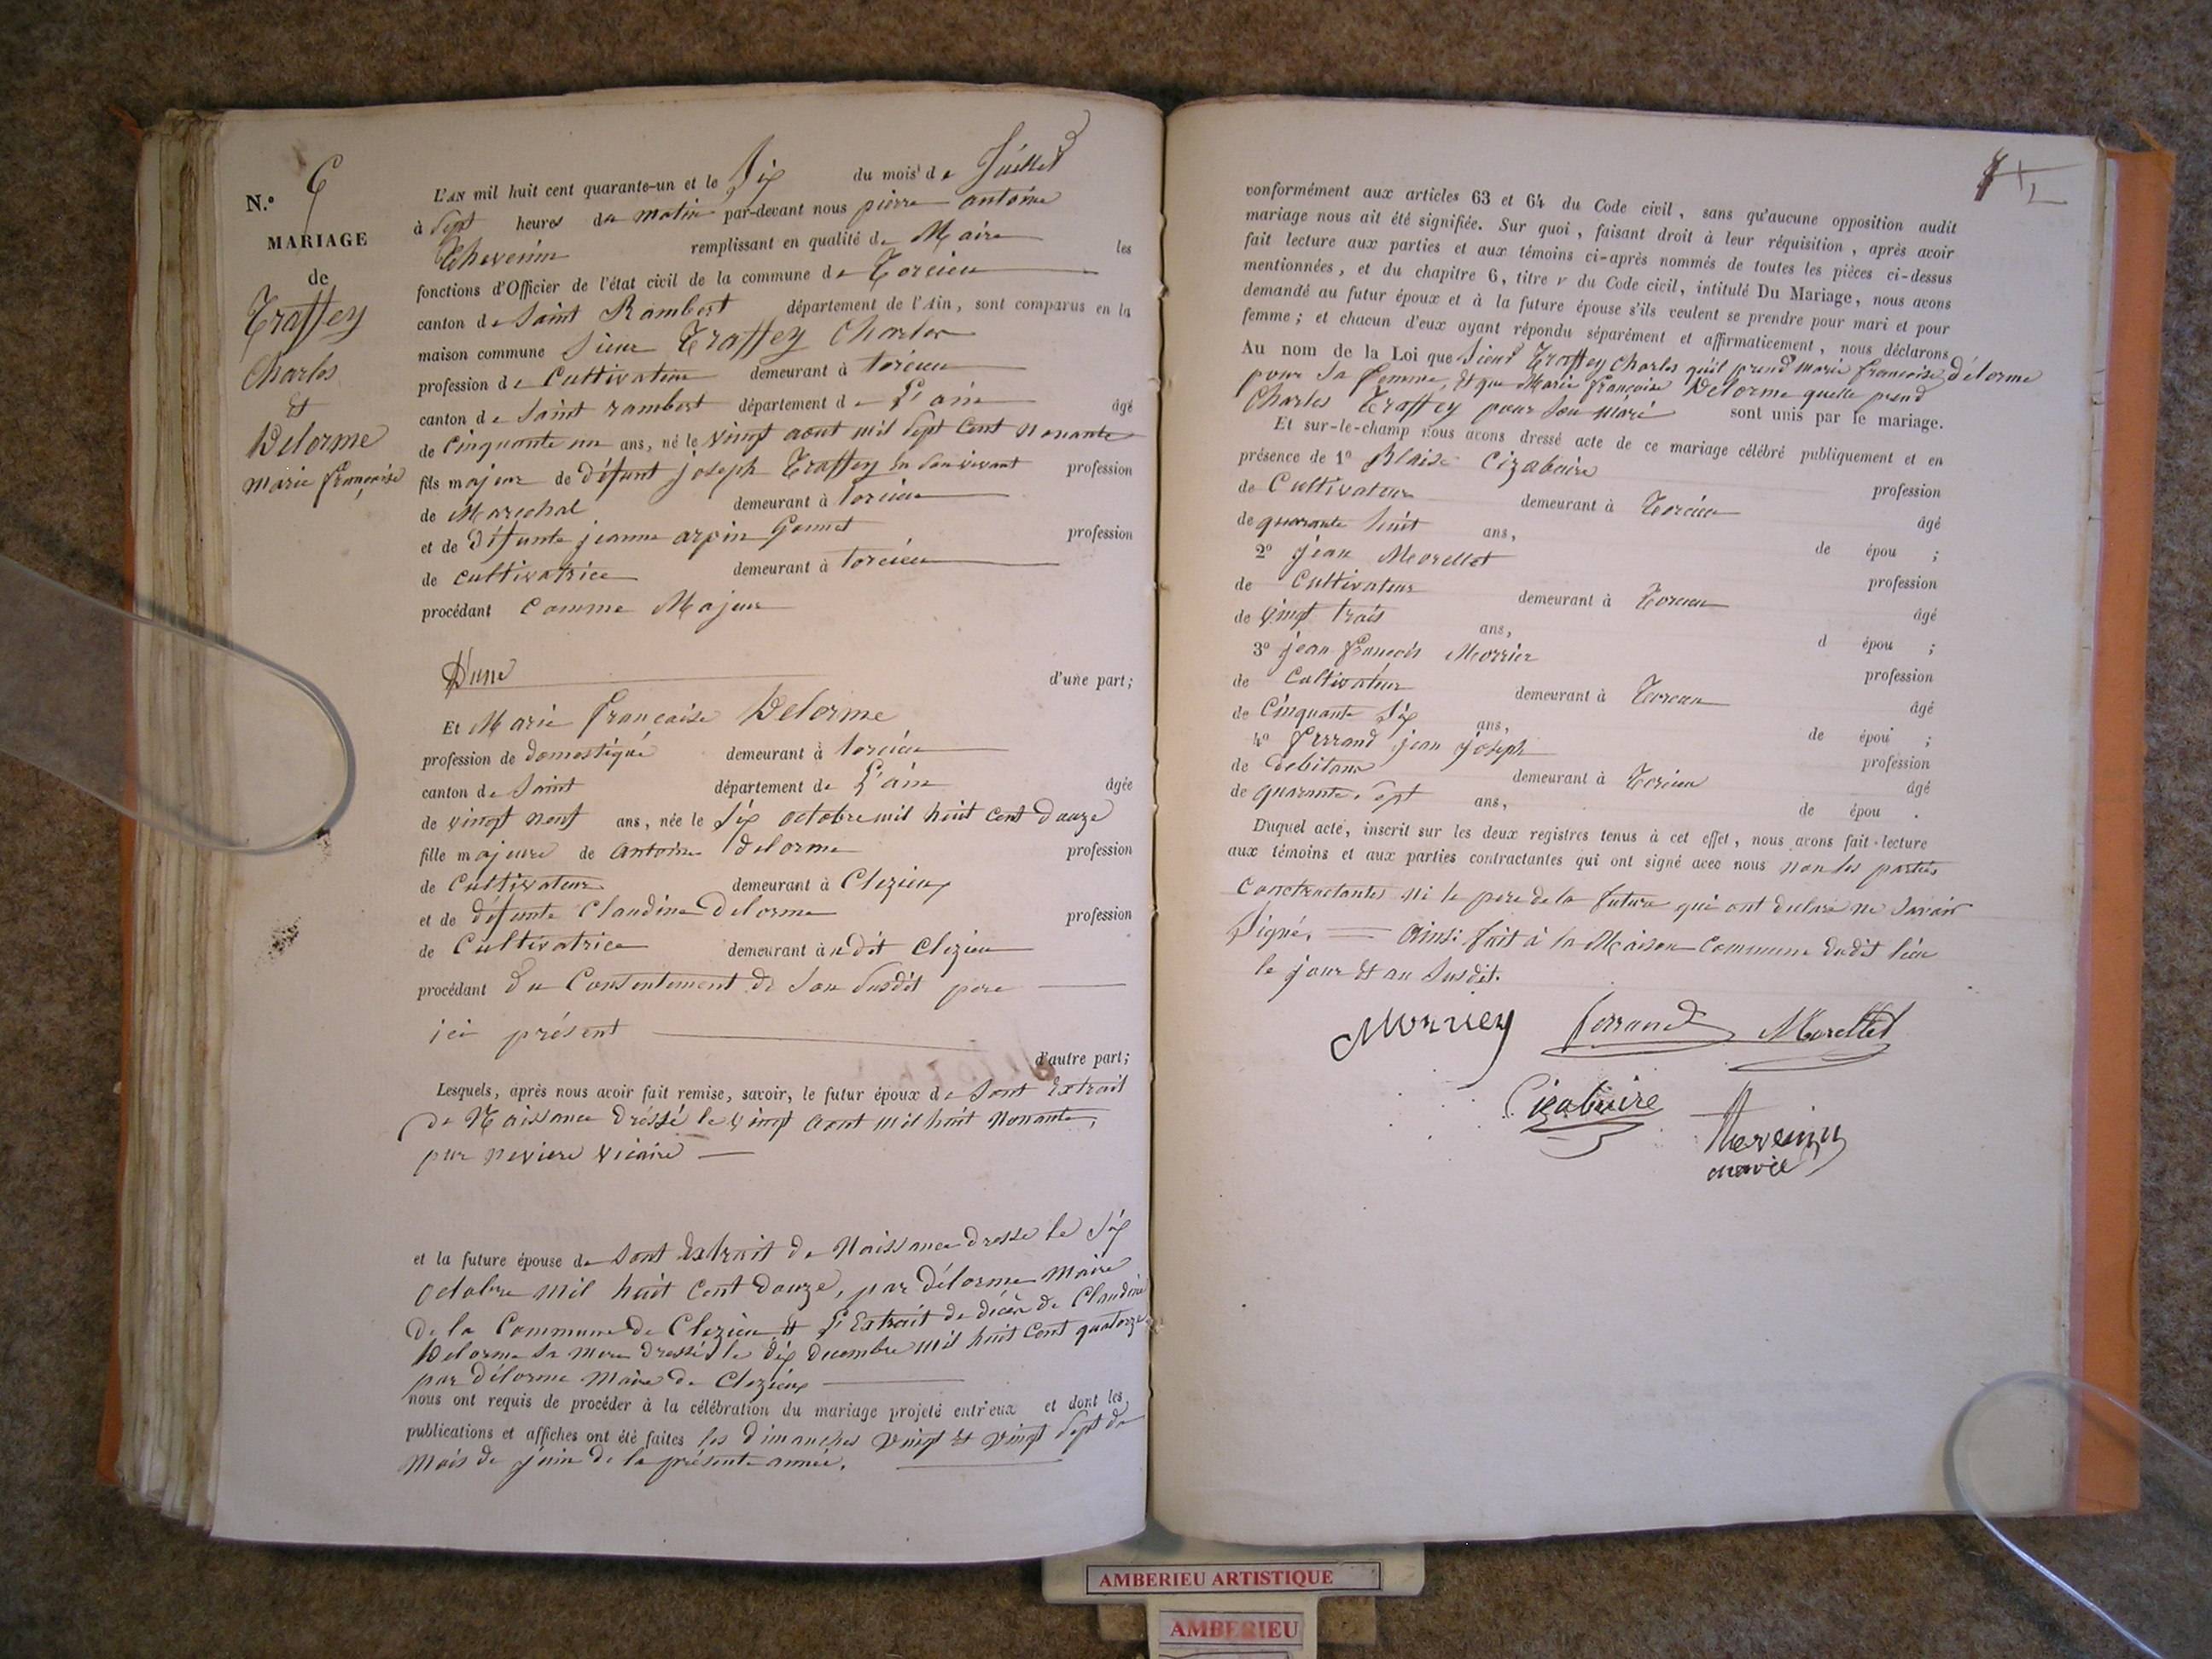 N.º 6
MARIAGE
de
Traffey
Charles
et
Delorme
marie françoise
L'AN mil huit cent quarante-un et le Six du mois de Juillet
à Sept heures du matin par-devant nous pierre antoine
Thevenin remplissant en qualité de Maire les
fonctions d'Officier de l'état civil de la commune de Torcieu
canton de Saint Rambert département de l'Ain, sont comparus en la
maison commune Sieur Traffey Charles
profession de Cultivateur demeurant à torcieu
canton de Saint rambert département de L'ain âgé
de Cinquante un ans, né le vingt aout mil Sept Cent nonante
fils majeur de défunt joseph Traffey En Son vivant profession
de Marechal demeurant à torcieu
et de défunte jeanne arpin Gonnet profession
de cultivatrice demeurant à torcieu
procédant Comme Majeur
D'une d'une part;
Et Marie françoise Delorme
profession de domestique demeurant à torcieu
canton de Saint département de L'ain âgée
de vingt neuf ans, née le Six octobre mil huit cent douze
fille majeure de antoine delorme profession
de Cultivateur demeurant à Clezieux
et de défunte Claudine Delorme profession
de Cultivatrice demeurant à udit Clezieu
procédant du Consentement de Son Susdit pere
ici présent
d'autre part;
Lesquels, après nous avoir fait remise, savoir, le futur époux de Sont Extrait
de Naissance dréssé le vingt aout mil huit Nonante,
par vicaire
et la future épouse de Sont Extrait de Naissance dresse le Six
octobre mil huit Cent douze, par délorme Maire
de la Commune de Clezieu et L'Extrait de décès de Claudine
Delorme Sa mere dressé le dix decembre mil huit Cent quatorze
par délorme Maire de Clezieux
nous ont requis de procéder à la célébration du mariage projeté entr'eux et dont les
publications et affiches ont été faites les dimanches vingt et vingt Sept du
Mois de juin de la présente année.
conformément aux articles 63 et 64 du Code civil, sans qu'aucune opposition audit
mariage nous ait été signifiée. Sur quoi, faisant droit à leur réquisition, après avoir
fait lecture aux parties et aux témoins ci-après nommés de toutes les pièces ci-dessus
mentionnées, et du chapitre 6, titre v du Code civil, intitulé Du Mariage, nous avons
demandé au futur époux et à la future épouse s'ils veulent se prendre pour mari et pour
femme; et chacun d'eux ayant répondu séparément et affirmativement, nous déclarons
Au nom de la Loi que Sieur Traffey Charles qu'il prend marie francoise délorme
pour Sa femme, et que Marie françoise Delorme quelle prend
Charles Traffey pour Son Mari sont unis par le mariage.
Et sur-le-champ nous avons dressé acte de ce mariage célébré publiquement et en
présence de 1º Blaise Cizabuire profession
de Cultivateur demeurant à Torcieu âgé
de quarante huit ans, de épou ;
2º jean Morellet profession
de Cultivateur demeurant à Torcieu âgé
de vingt trois ans, d épou ;
3º jean françois Morrier profession
de Cultivateur demeurant à Torcieu âgé
de Cinquante Six ans, de épou ;
4º ferrand jean joseph profession
de debitant demeurant à Torcieu âgé
de quarante Sept ans, de épou .
Duquel acte, inscrit sur les deux registres tenus à cet effet, nous avons fait lecture
aux témoins et aux parties contractantes qui ont signé avec nous non les parties
Contractantes ni le pere de la future qui ont declaré ne Savoir
Signé. Ainsi fait à la Maison Commune dudit lieu
le jour et an Susdit.
Morrier ferrand Morellet
Cizabuire
Thevenin
maire
AMBERIEU ARTISTIQUE
AMBERIEU